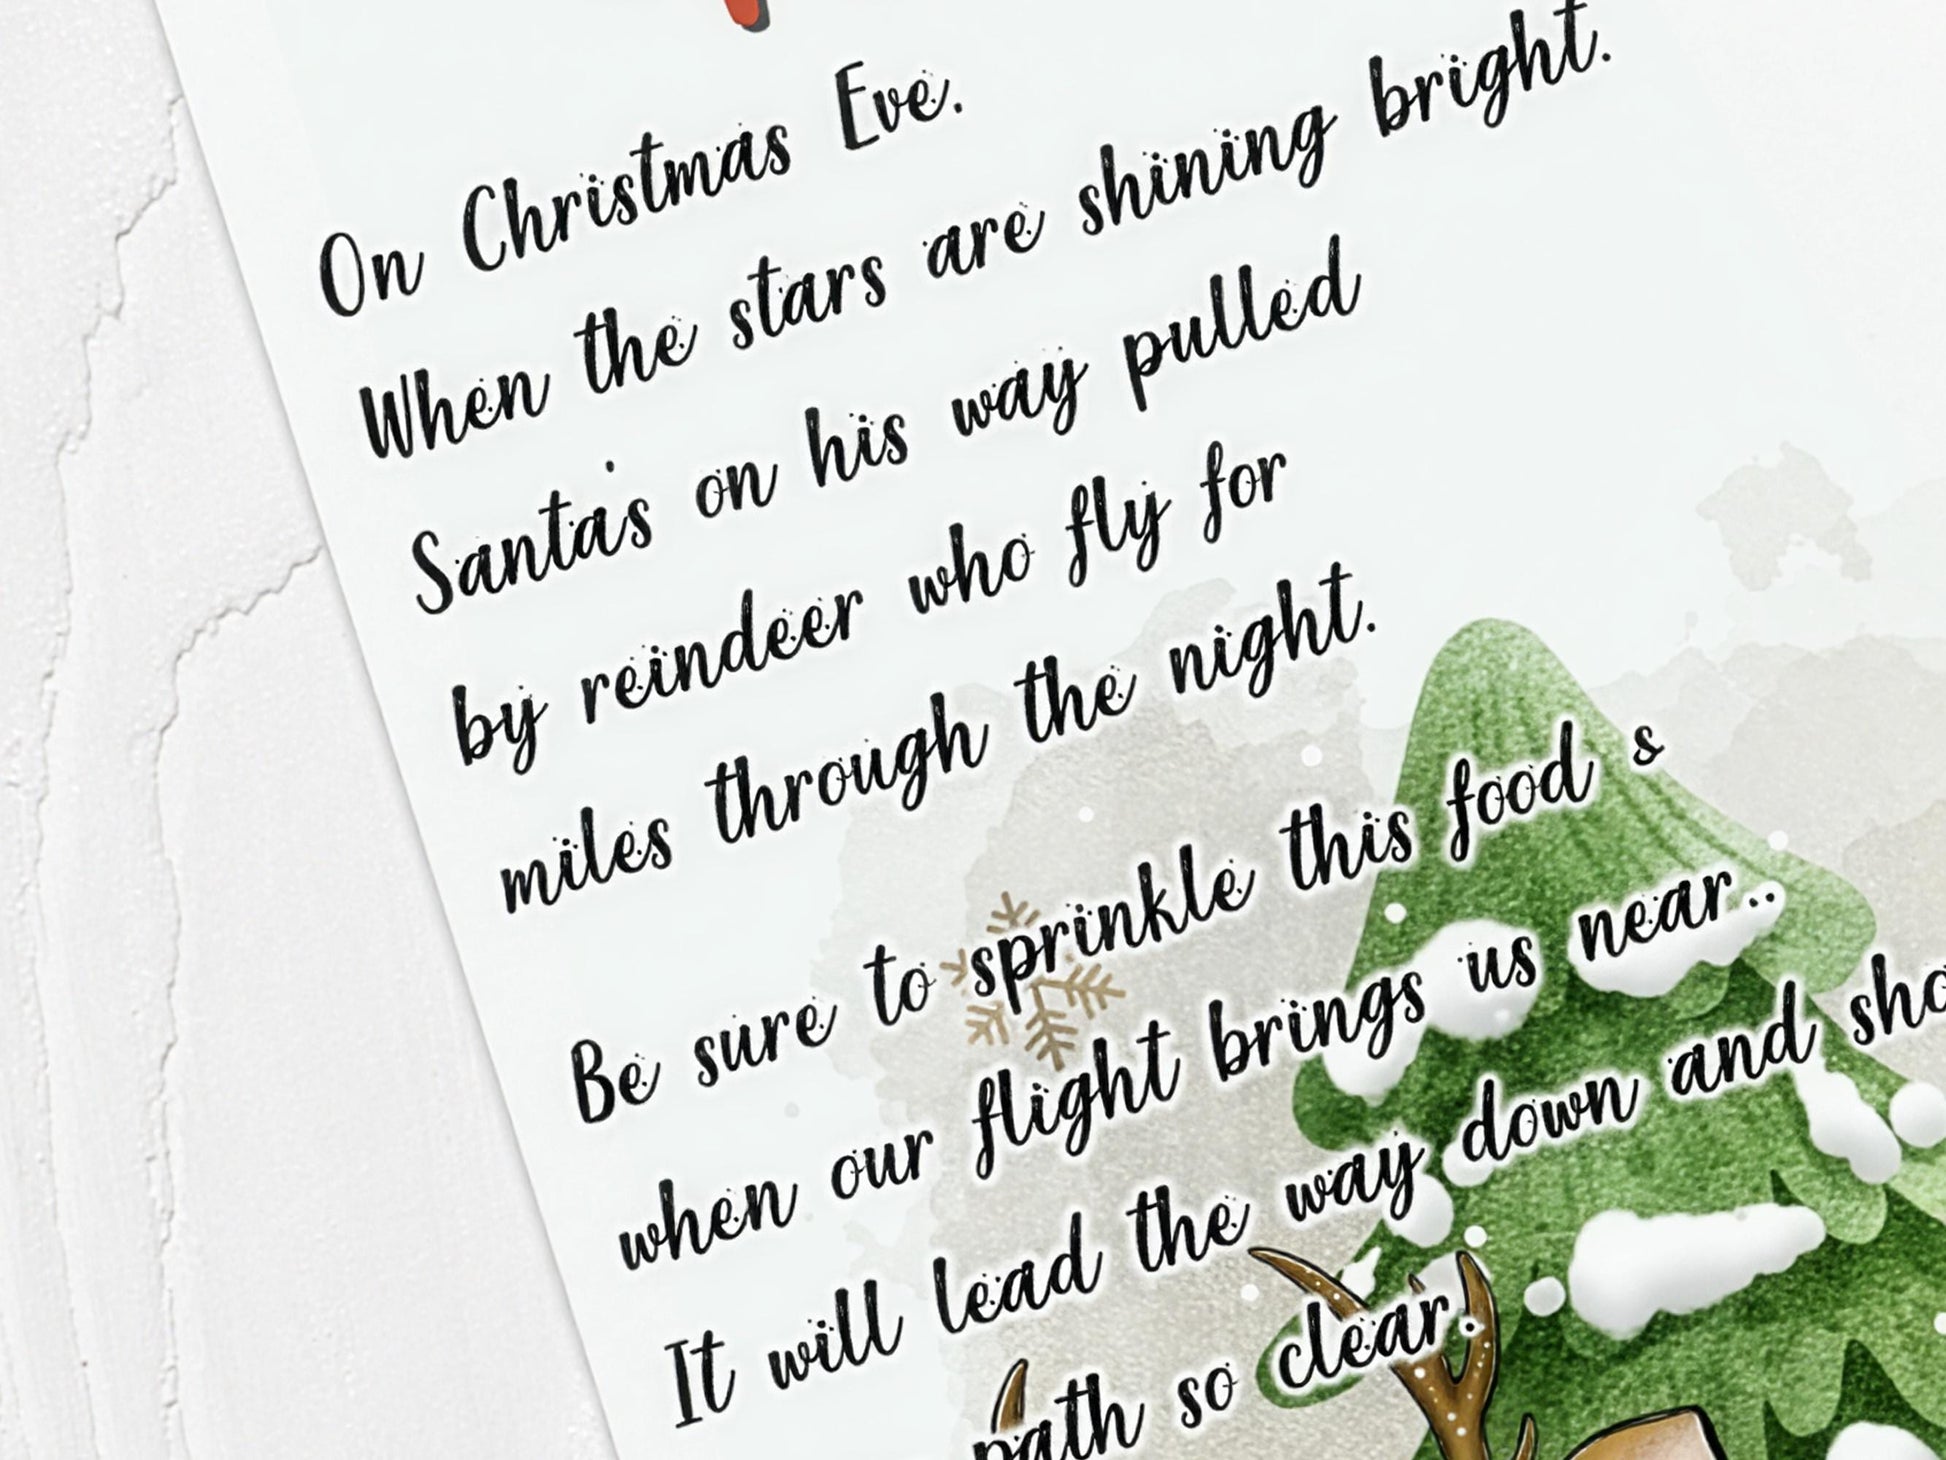 On Christmas Eve.
When the stars are shining bright.
Santa's on his way pulled
by reindeer who fly for
miles through the night.
Be sure to sprinkle this food &
when our flight brings us near..
It will lead the way down and
path so clear!